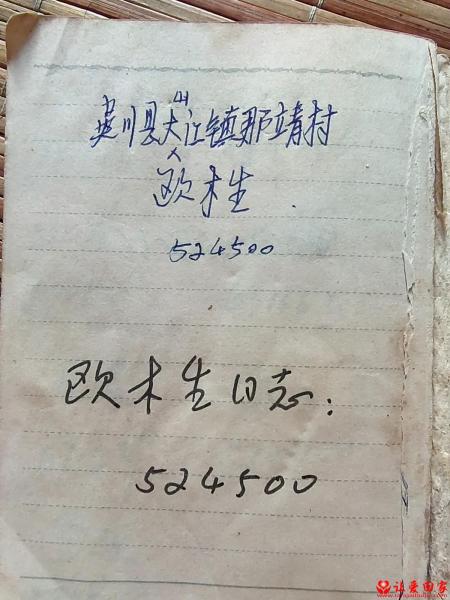 吴川县大山江镇那靖村
欧木生.
524500
欧木生日志:
524500
让爱回家